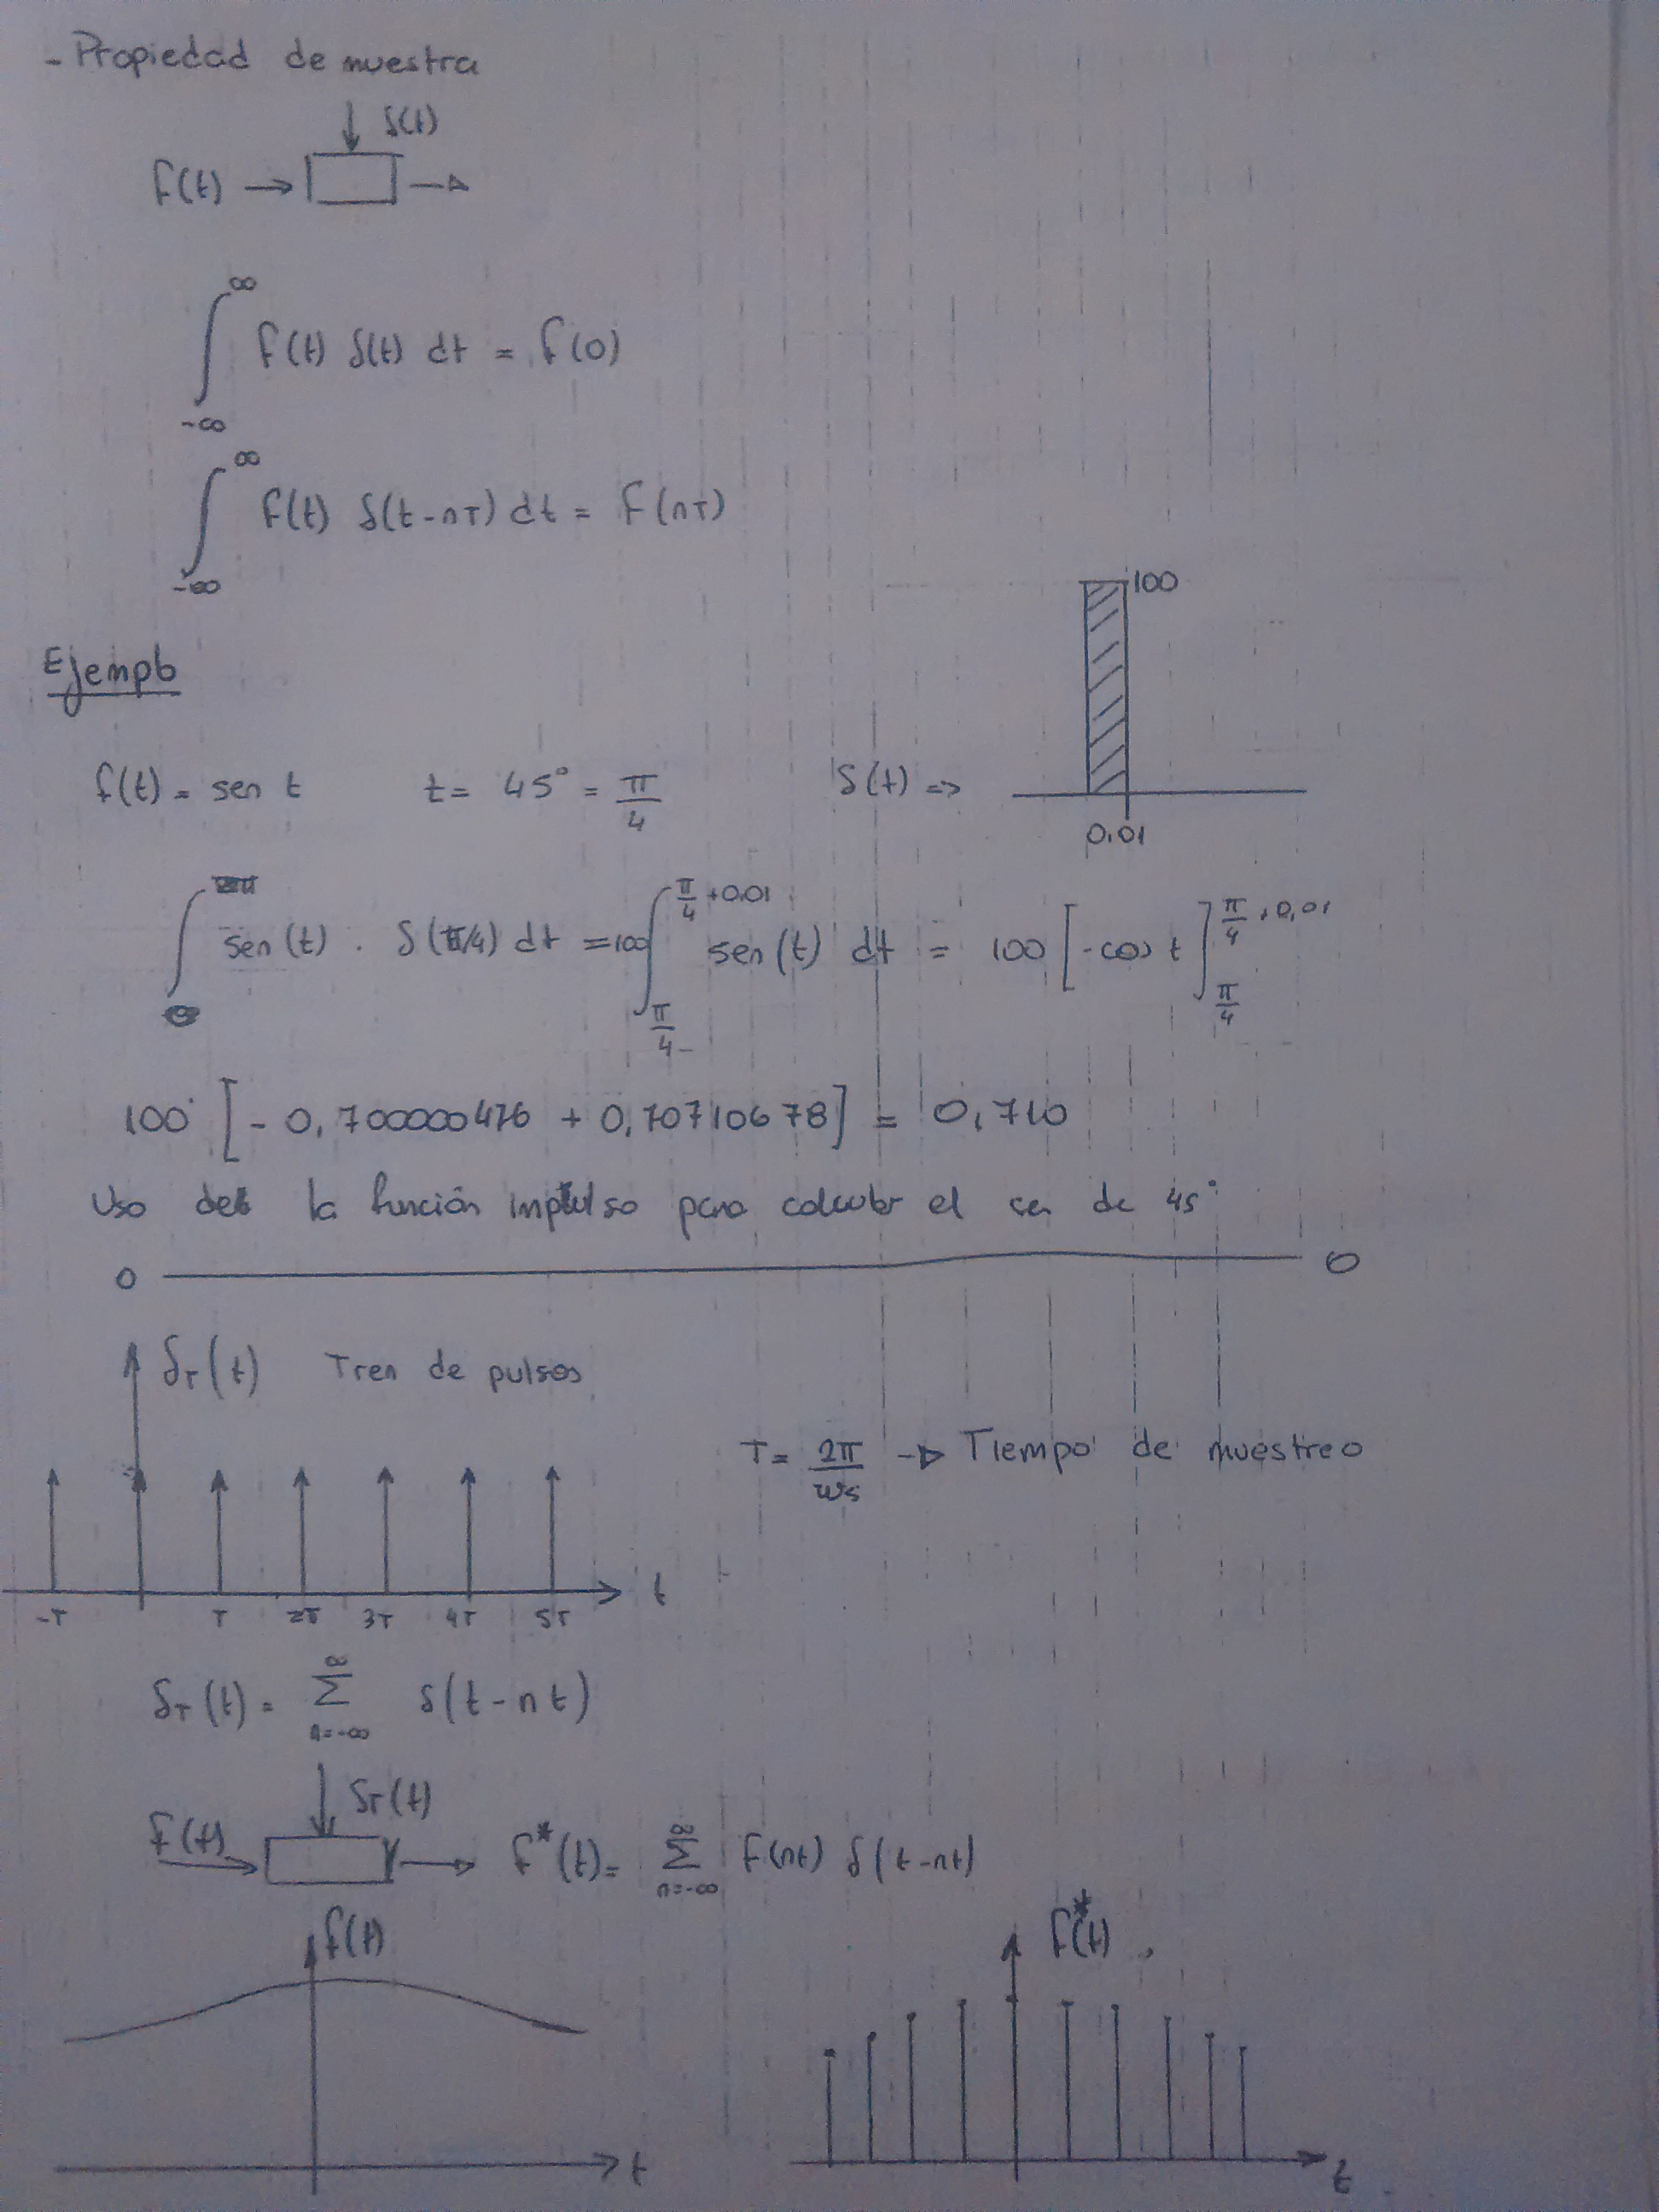 - Propiedad de muestra
δ(t)
f(t) →
∫_{-∞}^{∞} f(t) δ(t) dt = f(0)
∫_{-∞}^{∞} f(t) δ(t-nT) dt = f(nT)
100
Ejemplo
f(t) = sen t    t = 45° = π/4    δ(t) =>
0,01
∫ sen(t) . δ(π/4) dt = 100 ∫_{π/4}^{π/4 +0.01} sen(t) dt = 100 [-cos t]_{π/4}^{π/4 + 0,01}
100 [- 0,700000476 + 0,70710678] = 0,710
Uso de la función impulso para calcular el sen de 45°
0 ——— 0
δT(t) Tren de pulsos
T = 2π/ws → Tiempo de muestreo
t
-T T 2T 3T 4T 5T
δT(t) = Σ_{n=-∞}^{∞} δ(t-nt)
δT(t)
f(t) → f*(t) = Σ_{n=-∞}^{∞} f(nt) δ(t-nt)
f(t) f*(t)
t t